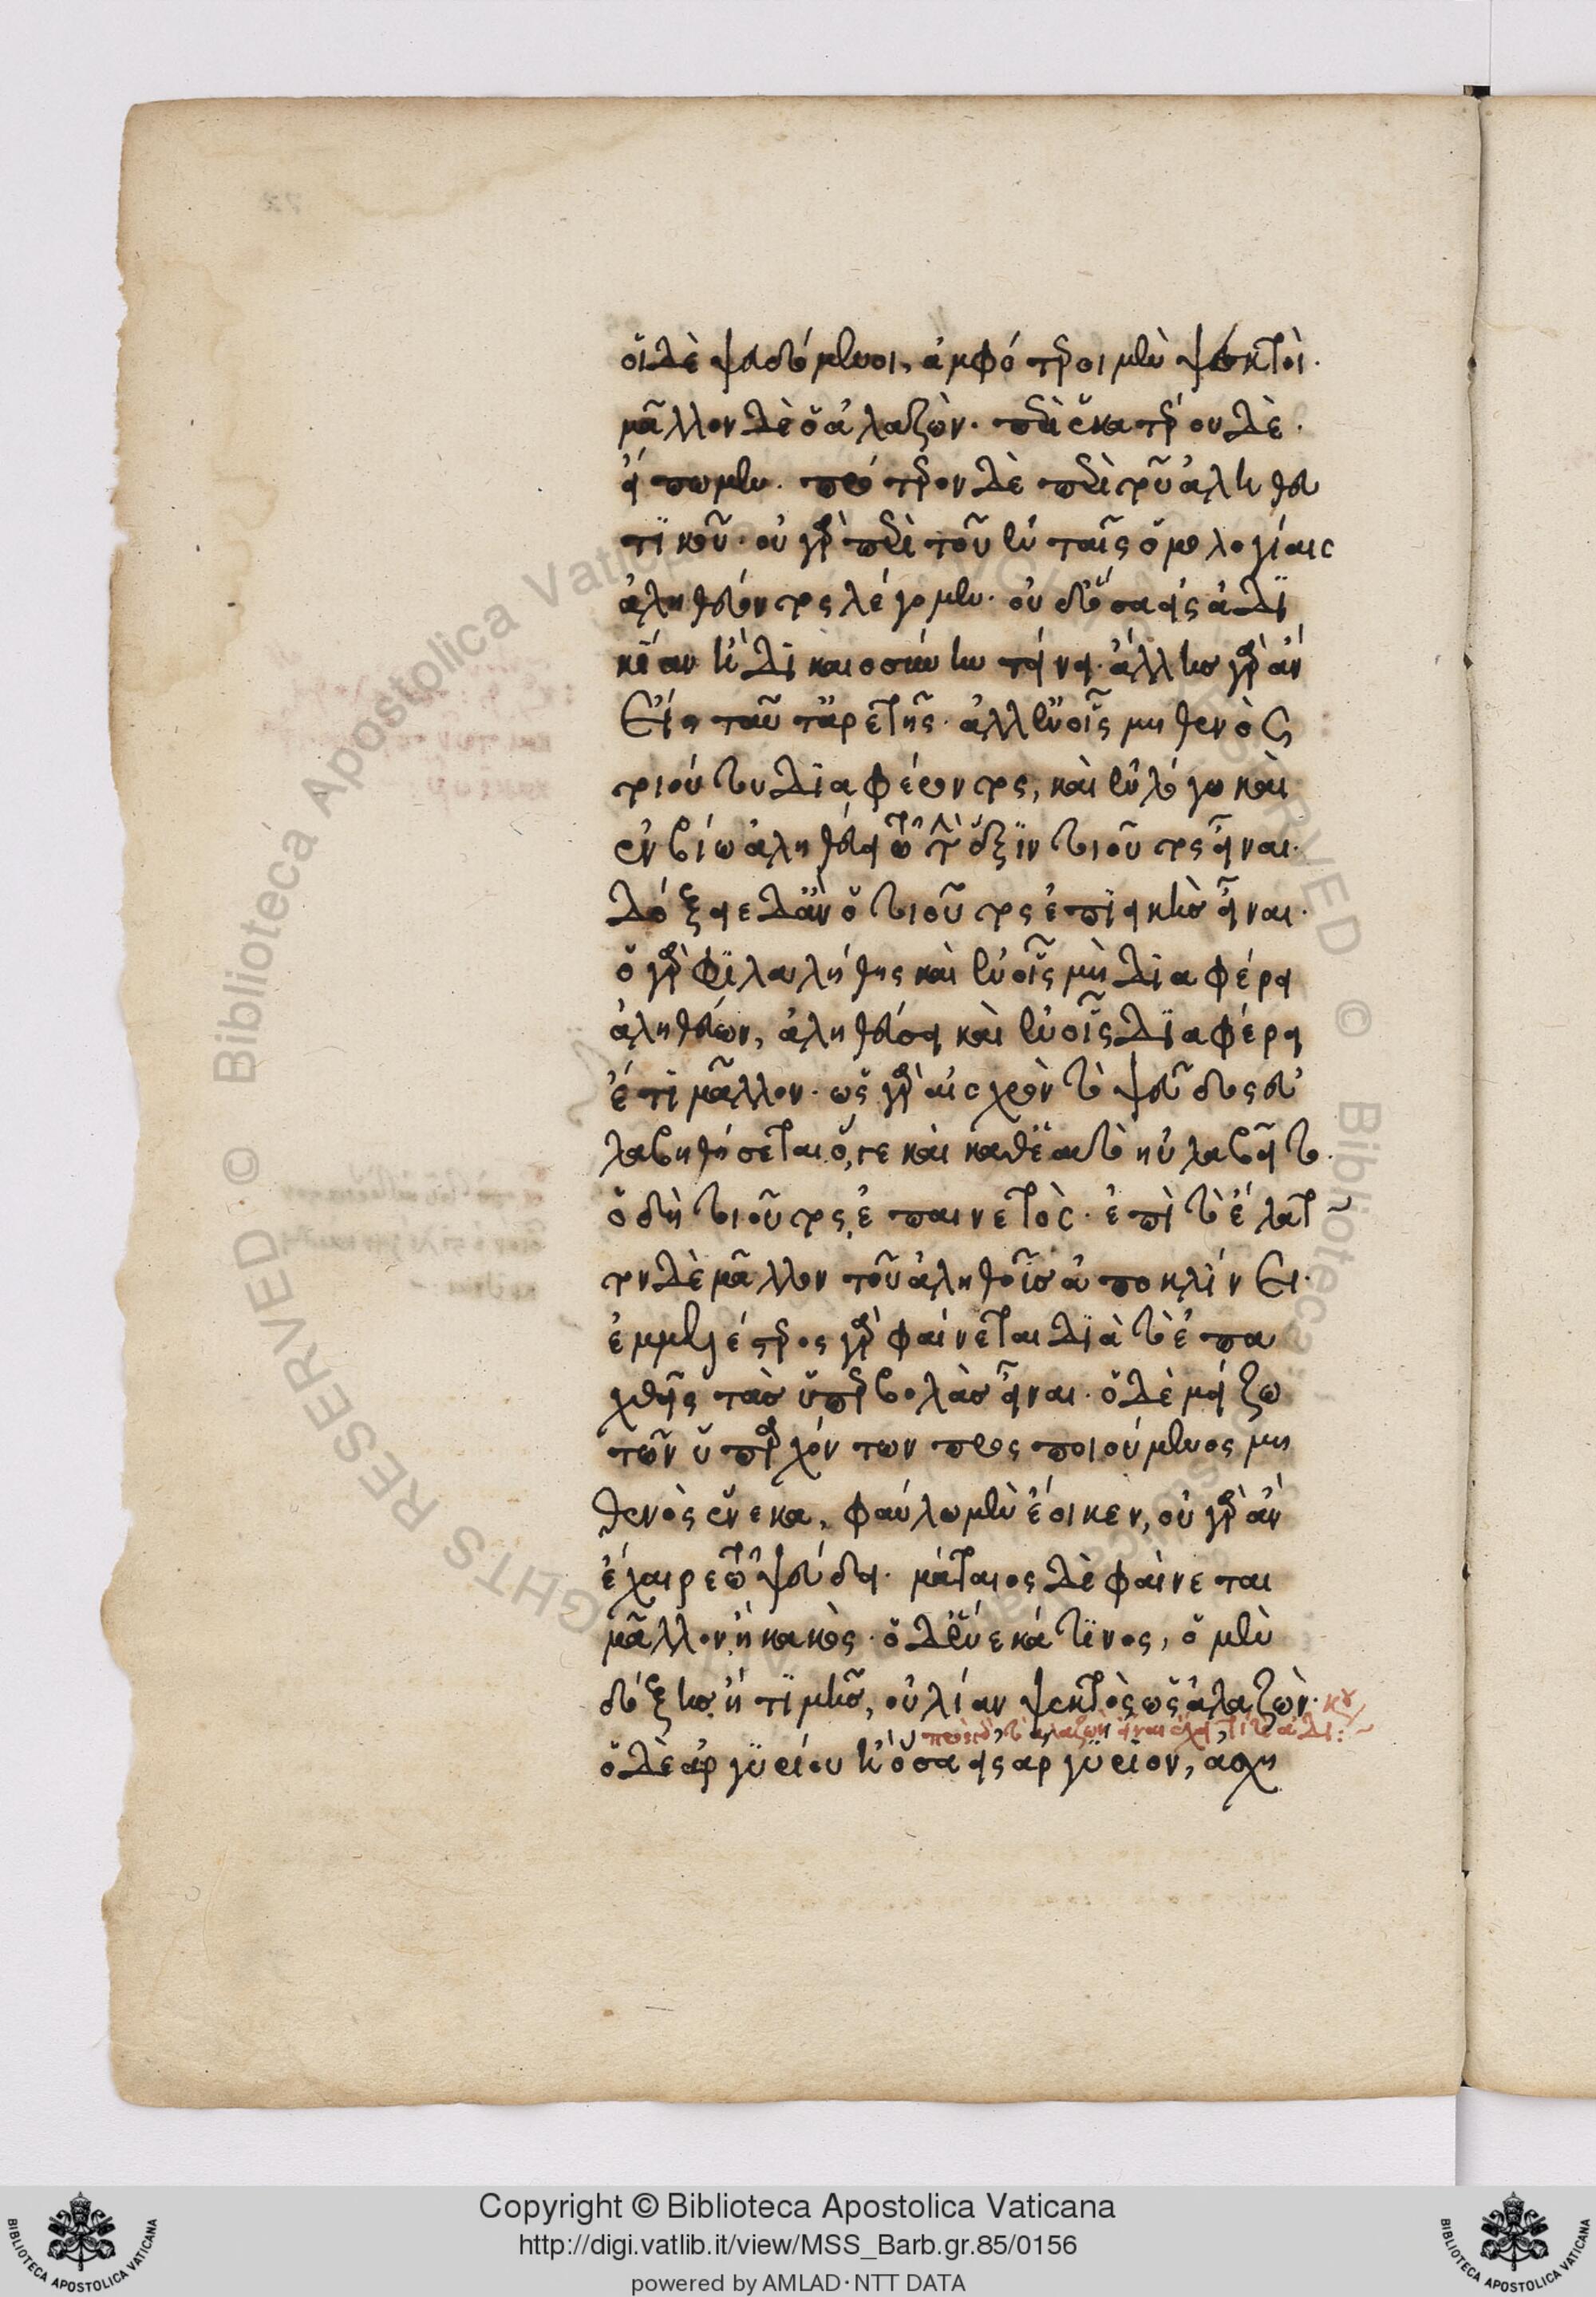 οἱ δὲ ψευδόμενοι, ἀμφότεροι μὲν ψεκτοὶ·
μᾶλλον δὲ ὁ ἀλαζών. περὶ ἑκατέρου δὲ·
εἴπωμεν. πρότερον δὲ περὶ τοῦ ἀληθευ
τικοῦ· οὐ γὰρ περὶ τοῦ ἐν ταῖς ὁμολογίαις
ἀληθεύοντος λέγομεν. οὐδ' ὅσα εἰς ἀδι
κίαν ἢ δικαιοσύνην τείνει. ἄλλης γὰρ ἂν
εἴη ταῦτ' ἀρετῆς. ἀλλ' ἐν οἷς μηθενὸς
τοιούτου διαφέροντος, καὶ ἐν λόγω καὶ
ἐν βίω ἀληθεύει τῶ τὴν ἕξιν τοιοῦτος εἶναι.
δόξειε δ' ἂν ὁ τοιοῦτος ἐπιεικὴς εἶναι.
ὁ γὰρ φιλαλήθης καὶ ἐν οἷς μὴ διαφέρει
ἀληθεύων, ἀληθεύσει καὶ ἐν οἷς διαφέρει
ἔτι μᾶλλον. ὡς γὰρ αἰσχρὸν τὸ ψεῦδος εὐ
λαβηθήσεται ὅ, γε καὶ καθ' ἑαυτὸ ηὐλαβεῖτο.
ὁ δὴ τοιοῦτος, ἐπαινετός. ἐπὶ τὸ ἔλατ
τον δὲ μᾶλλον τοῦ ἀληθοῦς ἀποκλίνει.
ἐμμελέστερος γὰρ φαίνεται διὰ τὸ ἐπα
χθεῖς τὰς ὑπερβολὰς εἶναι. ὁ δὲ μείζω
τῶν ὑπαρχόντων προσποιούμενος μη
θενὸς ἕνεκα, φαύλω μὲν ἔοικεν, οὐ γὰρ ἂν
ἔχαιρε τῶ ψεύδει. μάταιος δὲ φαίνεται
μᾶλλον ἢ κακός. ὁ δ' ἕνεκά τινος, ὁ μὲν
δόξης ἢ τιμῆς, οὐ λίαν ψεκτὸς ὡς ἀλαζών.
ὁ δὲ ἀργυρίου ἢ ὅσα εἰς ἀργύριον, ἀσχη
Copyright © Biblioteca Apostolica Vaticana
http://digi.vatlib.it/view/MSS_Barb.gr.85/0156
powered by AMLAD·NTT DATA